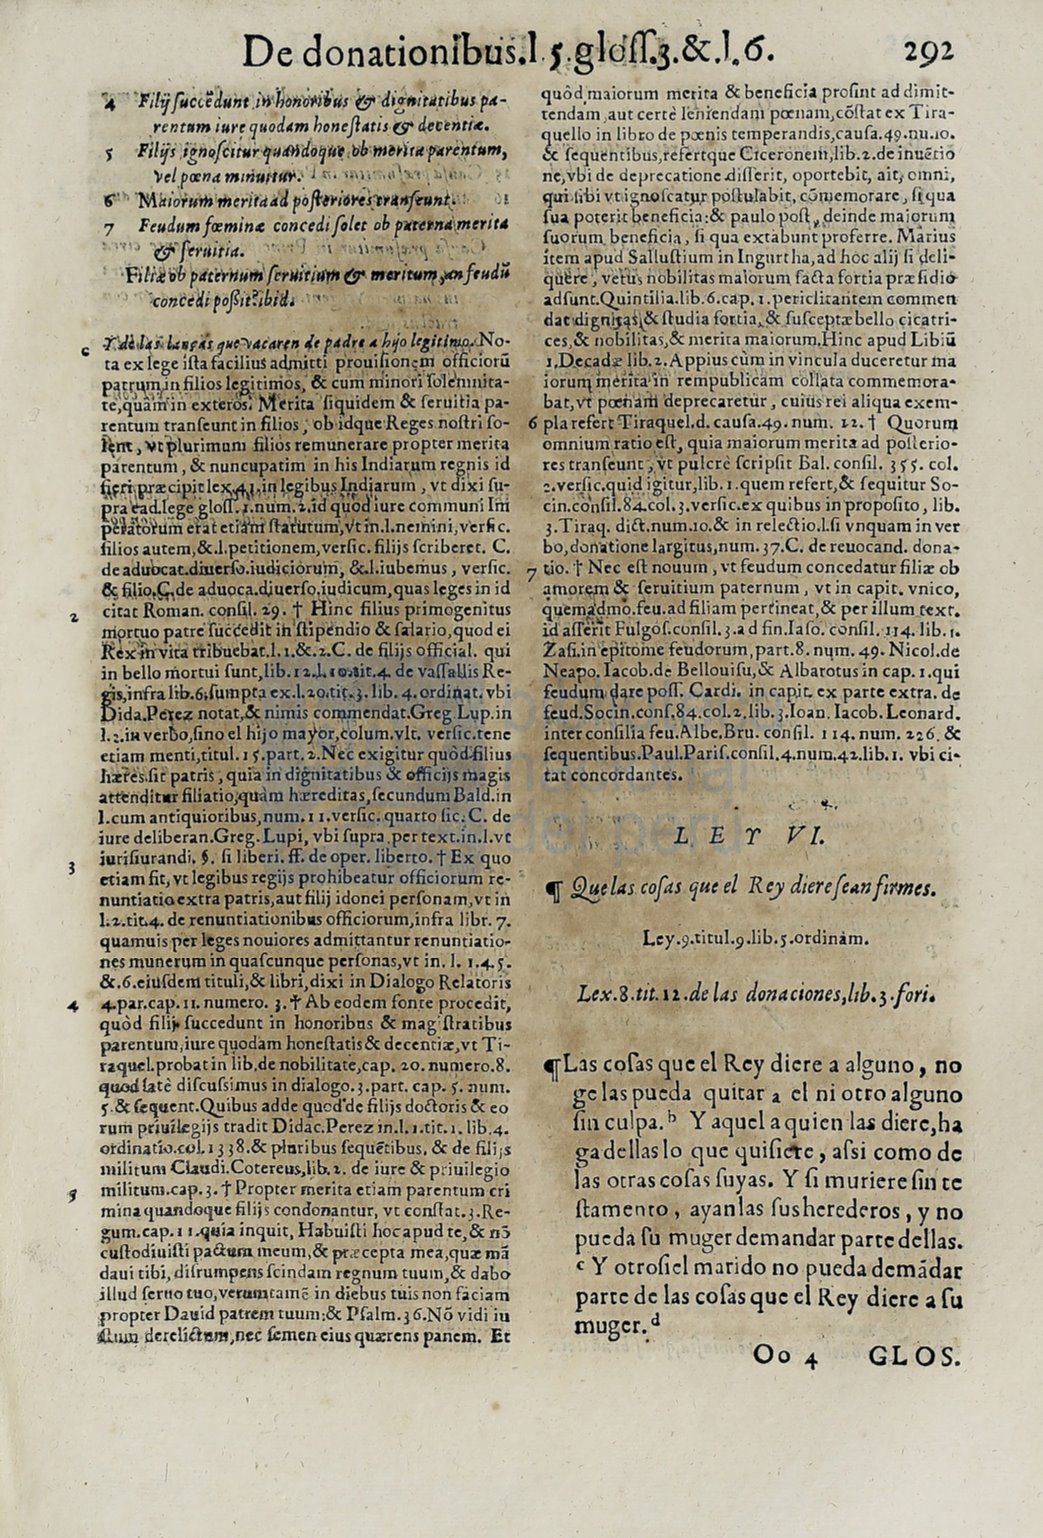 De donationibus.l.5.gloſſ.3.&.l.6. 292
4 Filij ſuccēdunt in honoribus & dignitatibus pa-
rentum iure quodam honeſtatis & decentiæ.
5 Filijs ignoſcitur quandoque ob merita parentum,
vel pœna minuitur.
6 Maiorum merita ad poſteriores tranſeunt.
7 Feudum fœminæ concedi ſolet ob paterna merita
& ſeruitia.
Filiæ ob paternum ſeruitium & meritum, an feudū
concedi poßit? ibid.
c Y de las lanças que vacaren de padre a hijo legitimo. No-
ta ex lege iſta facilius admitti prouiſionem officiorū
patrum in filios legitimos, & cum minori ſolemnita-
te, quàm in exteros. Merita ſiquidem & ſeruitia pa-
rentum tranſeunt in filios, ob idque Reges noſtri ſo-
lent, vt plurimum filios remunerare propter merita
parentum, & nuncupatim in his Indiarum regnis id
fieri præcipit lex.41.in legibus Indiarum, vt dixi ſu-
pra ead.lege gloſſ.1.num.2.id quod iure communi Im
peratorum erat etiam ſtatutum, vt in.l.nemini, verſic.
filios autem,&.l.petitionem, verſic. filijs ſcriberet. C.
de aduocat.diuerſo.iudiciorum, &.l.iubemus, verſic.
& filio.C.de aduoca.diuerſo.iudicum, quas leges in id
2 citat Roman. conſil. 29. † Hinc filius primogenitus
mortuo patre ſuccedit in ſtipendio & ſalario, quod ei
Rex in vita tribuebat.l.1.&.2.C. de filijs official. qui
in bello mortui ſunt, lib.12.l.10.tit.4. de vaſſallis Re-
gis, infra lib.6.ſumpta ex.l.20.tit.3.lib.4.ordinat. vbi
Dida.Perez notat, & nimis commendat.Greg.Lup.in
l.2.in verbo, ſino el hijo mayor, colum.vlt. verſic.tene
etiam menti, titul.15.part.2.Nec exigitur quòd filius
hæres ſit patris, quia in dignitatibus & officijs magis
attenditur filiatio, quàm hæreditas, ſecundum Bald.in
l.cum antiquioribus, num.11.verſic.quarto ſic. C. de
iure deliberan.Greg.Lupi, vbi ſupra, per text.in.l.vt
iuriſiurandi. §. ſi liberi. ff. de oper. liberto. † Ex quo
3 etiam fit, vt legibus regijs prohibeatur officiorum re-
nuntiatio extra patris, aut filij idonei perſonam, vt in
l.2.tit.4. de renuntiationibus officiorum, infra libr. 7.
quamuis per leges nouiores admittantur renuntiatio-
nes munerum in quaſcunque perſonas, vt in. l. 1.4.5.
&.6.eiuſdem tituli, & libri, dixi in Dialogo Relatoris
4 4.par.cap.11. numero. 3. † Ab eodem fonte procedit,
quòd filij ſuccedunt in honoribus & magiſtratibus
parentum, iure quodam honeſtatis & decentiæ, vt Ti-
raquel.probat in lib.de nobilitate, cap. 20. numero.8.
quod latè diſcuſsimus in dialogo.3.part. cap. 5. num.
5.& ſequent.Quibus adde quod de filijs doctoris & eo
rum priuilegijs tradit Didac.Perez in.l.1.tit.1.lib.4.
ordinatio.col.1338.& pluribus ſequētibus. & de filijs
militum Claudi.Cotereus, lib.2. de iure & priuilegio
5 militum.cap.3. † Propter merita etiam parentum cri
mina quandoque filijs condonantur, vt conſtat.3.Re-
gum.cap.11.quia inquit, Habuiſti hoc apud te, & nō
cuſtodiuiſti pactum meum, & præcepta mea, quæ mā
daui tibi, diſrumpens ſcindam regnum tuum, & dabo
illud ſeruo tuo, veruntamē in diebus tuis non faciam
propter Dauid patrem tuum: & Pſalm.36.Nō vidi iu
ſtum derelictum, nec ſemen eius quærens panem. Et
quòd maiorum merita & beneficia proſint ad dimit-
tendam, aut certè leniendam pœnam, cōſtat ex Tira-
quello in libro de pœnis temperandis, cauſa.49.nu.10.
& ſequentibus, refertque Ciceronem, lib.2.de inuētio
ne, vbi de deprecatione diſſerit, oportebit, ait, omni,
qui ſibi vt ignoſcatur poſtulabit, cōmemorare, ſi qua
ſua poterit beneficia: & paulo poſt, deinde maiorum
ſuorum beneficia, ſi qua extabunt proferre. Marius
item apud Salluſtium in Iugurtha, ad hoc alij ſi deli-
quere, vetus nobilitas maiorum facta fortia præſidio
adſunt.Quintilia.lib.6.cap.1.periclitantem commen
dat dignitas, & ſtudia fortia, & ſuſceptæ bello cicatri-
ces, & nobilitas, & merita maiorum. Hinc apud Libiū
1.Decadæ lib.2.Appius cùm in vincula duceretur ma
iorum merita in rempublicam collata commemora-
bat, vt pœnam deprecaretur, cuius rei aliqua exem-
6 pla refert Tiraquel.d. cauſa.49. num. 12. † Quorum
omnium ratio eſt, quia maiorum merita ad poſterio-
res tranſeunt, vt pulcrè ſcripſit Bal. conſil. 355. col.
2.verſic.quid igitur, lib.1.quem refert, & ſequitur So-
cin.conſil.84.col.3.verſic.ex quibus in propoſito, lib.
3.Tiraq. dict.num.10.& in relectio.l.ſi vnquam in ver
bo, donatione largitus, num.37.C. de reuocand. dona-
7 tio. † Nec eſt nouum, vt feudum concedatur filiæ ob
amorem & ſeruitium paternum, vt in capit. vnico,
quemadmo.feu.ad filiam pertineat, & per illum text.
id aſſerit Fulgoſ.conſil.3.ad fin.Iaſo. conſil.114. lib.1.
Zaſi.in epitome feudorum, part.8. num. 49. Nicol.de
Neapo. Iacob.de Bellouiſu, & Albarotus in cap. 1.qui
feudum dare poſſ. Cardi. in capit. ex parte extra. de
feud.Socin.conſ.84.col.2.lib.3.Ioan. Iacob.Leonard.
inter conſilia feu.Albe.Bru. conſil. 114. num. 226. &
ſequentibus.Paul.Pariſ.conſil.4.num.42.lib.1. vbi ci-
tat concordantes.
LEY VI.
¶ Que las coſas que el Rey diere ſean firmes.
Ley.9.titul.9.lib.5.ordinam.
Lex.8.tit.12.de las donaciones, lib.3.fori.
¶Las coſas que el Rey diere a alguno, no
ge las pueda quitar a el ni otro alguno
ſin culpa.b Y aquel a quien las diere, ha
ga dellas lo que quiſiere, aſsi como de
las otras coſas ſuyas. Y ſi muriere ſin te
ſtamento, ayanlas ſus herederos, y no
pueda ſu muger demandar parte dellas.
c Y otroſi el marido no pueda demādar
parte de las coſas que el Rey diere a ſu
muger.d
Oo 4 GLOS.